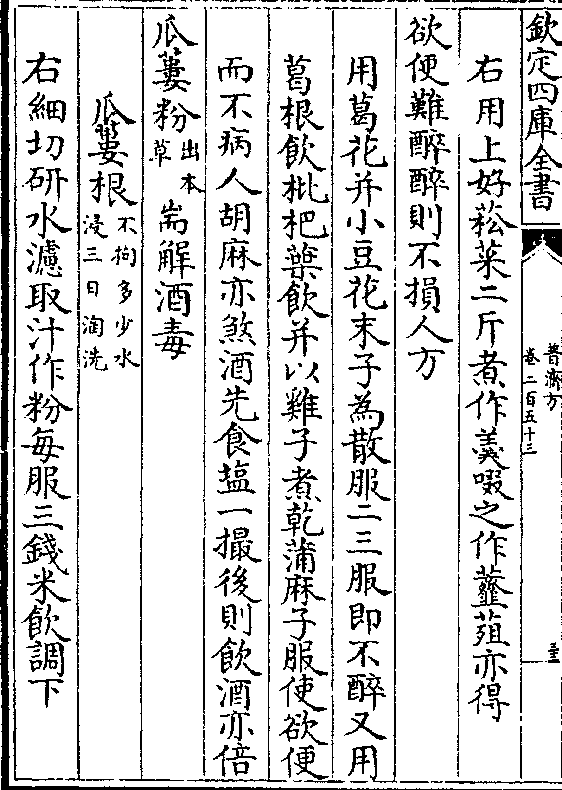 欽定四庫全書
普濟方
卷二百五十三
右用上好菘菜二斤煮作羹啜之作虀葅亦得
欲便難醉醉則不損人方
用葛花并小豆花末子為散服二三服即不醉又用
葛根飲枇杷葉飲并以雞子煮乾蒲麻子服使欲便
而不病人胡麻亦煞酒先食塩一撮後則飲酒亦倍
瓜蔞粉出本草 耑解酒毒
瓜蔞根不拘多少水浸三日淘洗
右細切研水濾取汁作粉每服三錢米飲調下